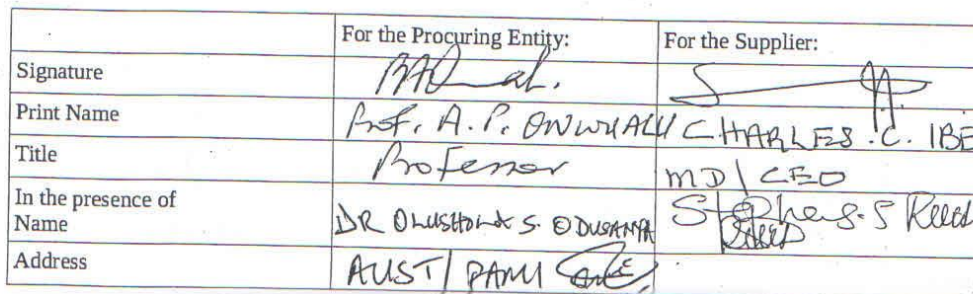 For the Procuring Entity: For the Supplier:
Signature
Print Name Prof. A. P. ONWUALU CHARLES .C. IBE
Title Professor MD/CEO
In the presence of
Name DR OLUSHOLA S. ODUSANYA Stephens
Address AUST/PAMI